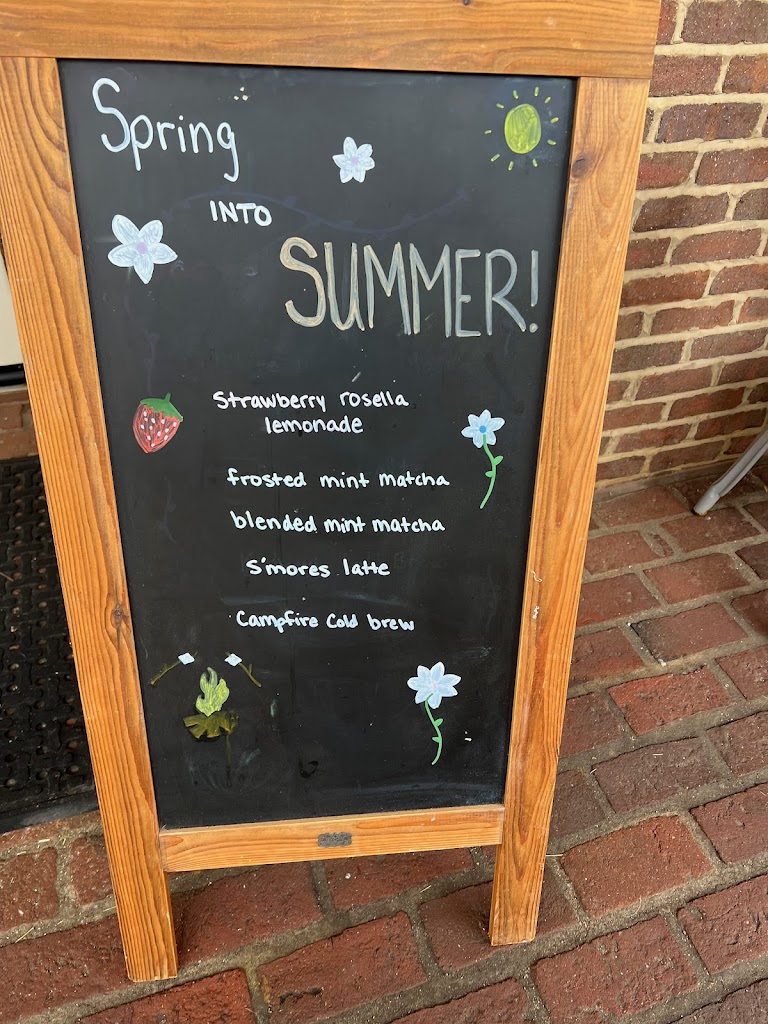 Spring
INTO
SUMMER!
Strawberry rosella
lemonade
frosted mint matcha
blended mint matcha
S'mores latte
Campfire Cold brew